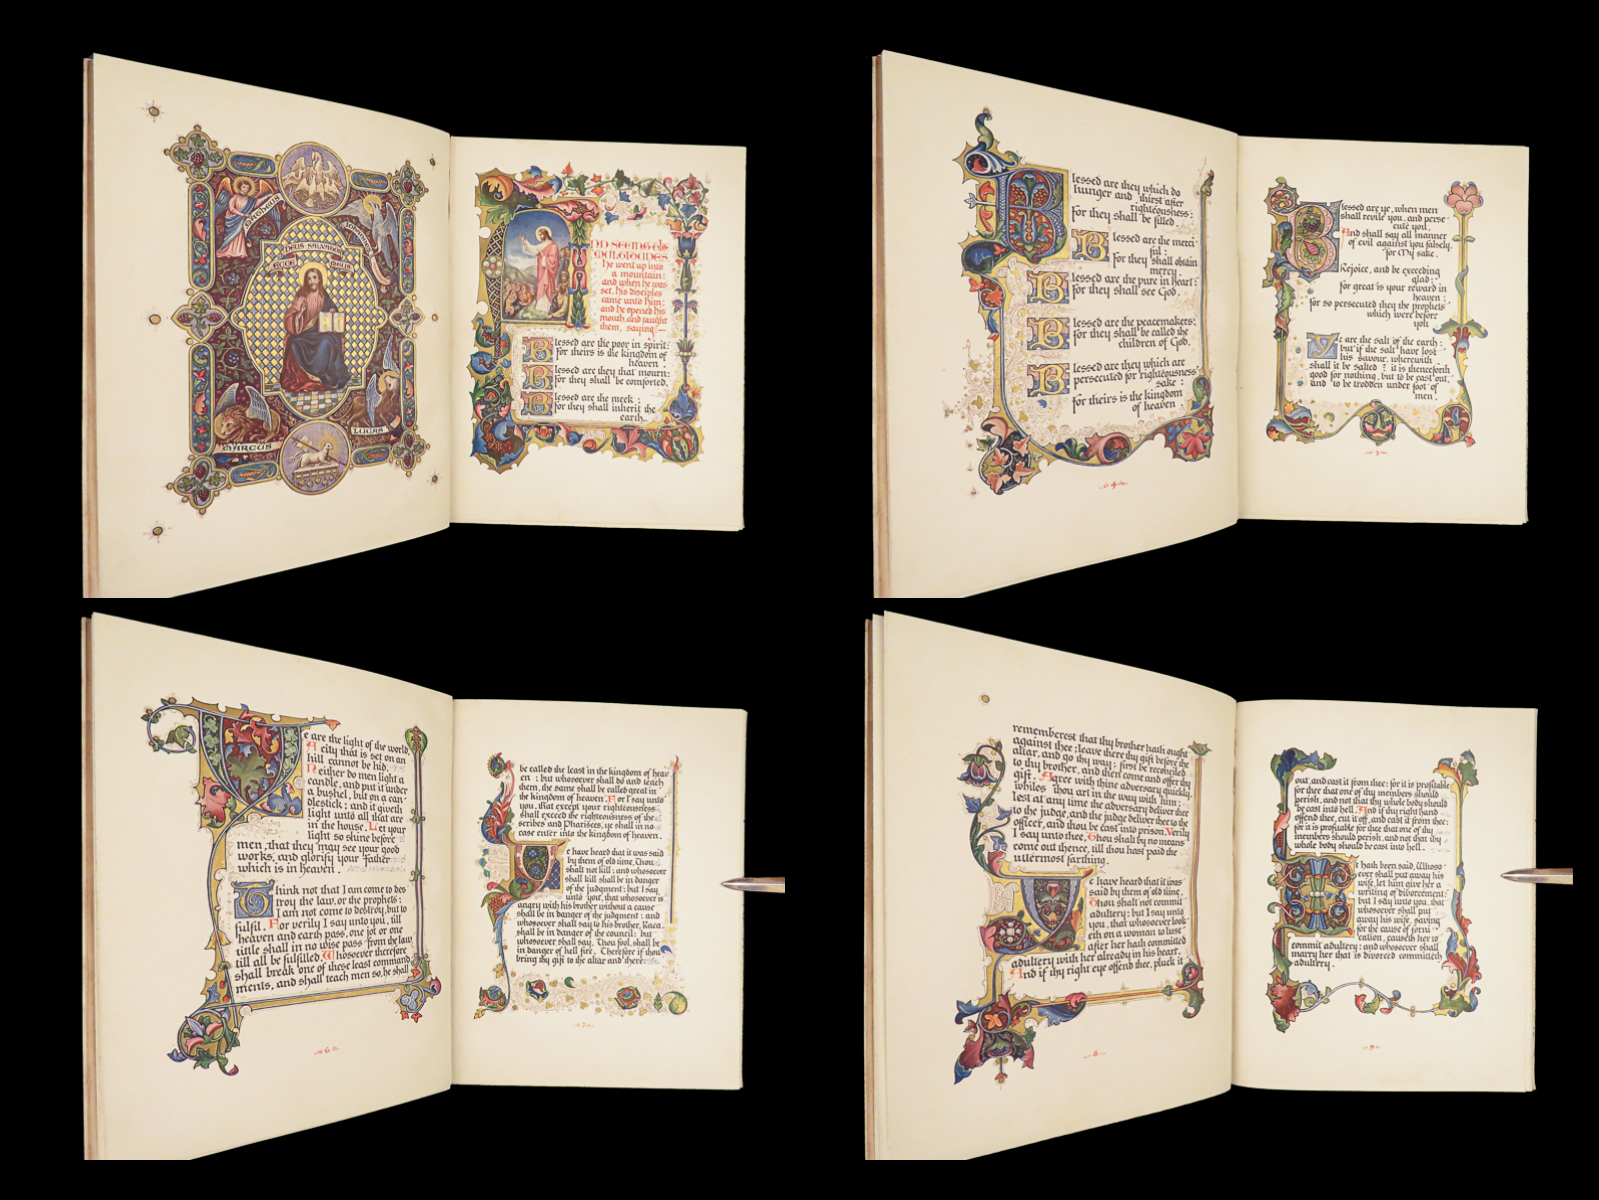 MATHEUS
JOHANNES
DEUS SALVATOR
ECCE MEUS
MARCUS
LUCAS
ND SEEING THE
MULTITUDES
he went up into
a mountain:
and when he was
set, his disciples
came unto him:
and he opened his
mouth, and taught
them, saying:—
Blessed are the poor in spirit:
for theirs is the kingdom of
heaven.
Blessed are they that mourn:
for they shall be comforted.
Blessed are the meek:
for they shall inherit the
earth.
Blessed are they which do
hunger and thirst after
righteousness:
for they shall be filled
Blessed are the merci
ful:
for they shall obtain
mercy.
Blessed are the pure in heart:
for they shall see God.
Blessed are the peacemakers:
for they shall be called the
children of God.
Blessed are they which are
persecuted for righteousness'
sake:
for theirs is the kingdom
of heaven.
4
Blessed are ye, when men
shall revile you, and perse
cute you,
And shall say all manner
of evil against you falsely,
for My sake.
Rejoice, and be exceeding
glad:
for great is your reward in
heaven:
for so persecuted they the prophets
which were before
you
Ye are the salt of the earth:
but if the salt have lost
his savour, wherewith
shall it be salted? it is thenceforth
good for nothing, but to be cast out,
and to be trodden under foot of
men.
5
Ye are the light of the world.
A city that is set on an
hill cannot be hid.
Neither do men light a
candle, and put it under
a bushel, but on a can-
dlestick; and it giveth
light unto all that are
in the house. Let your
light so shine before
men, that they may see your good
works, and glorify your Father
which is in heaven.
Think not that I am come to des
troy the law, or the prophets:
I am not come to destroy, but to
fulfil. For verily I say unto you, till
heaven and earth pass, one jot or one
tittle shall in no wise pass from the law,
till all be fulfilled. Whosoever therefore
shall break one of these least command
ments, and shall teach men so, he shall
6
be called the least in the kingdom of heav
en: but whosoever shall do and teach
them, the same shall be called great in
the kingdom of heaven. For I say unto
you, that except your righteousness
shall exceed the righteousness of the
scribes and Pharisees, ye shall in no
case enter into the kingdom of heaven.
Ye have heard that it was said
by them of old time, Thou
shalt not kill: and whosoever
shall kill shall be in danger
of the judgment: but I say
unto you, that whosoever is
angry with his brother without a cause
shall be in danger of the judgment: and
whosoever shall say to his brother, Raca,
shall be in danger of the council: but
whosoever shall say, Thou fool, shall be
in danger of hell fire. Therefore if thou
bring thy gift to the altar and there
7
rememberest that thy brother hath ought
against thee; leave there thy gift before the
altar, and go thy way; first be reconciled
to thy brother, and then come and offer thy
gift. Agree with thine adversary quickly,
whiles thou art in the way with him;
lest at any time the adversary deliver thee
to the judge, and the judge deliver thee to the
officer, and thou be cast into prison. Verily
I say unto thee, Thou shalt by no means
come out thence, till thou hast paid the
uttermost farthing.
Ye have heard that it was
said by them of old time,
Thou shalt not commit
adultery: but I say unto
you, that whosoever look-
eth on a woman to lust
after her hath committed
adultery with her already in his heart.
And if thy right eye offend thee, pluck it
8
out, and cast it from thee: for it is profitable
for thee that one of thy members should
perish, and not that thy whole body should
be cast into hell. And if thy right hand
offend thee, cut it off, and cast it from thee:
for it is profitable for thee that one of thy
members should perish, and not that thy
whole body should be cast into hell.
It hath been said, Whoso
ever shall put away his
wife, let him give her a
writing of divorcement:
but I say unto you, that
whosoever shall put
away his wife, saving
for the cause of forni
cation, causeth her to
commit adultery: and whosoever shall
marry her that is divorced committeth
adultery.
9